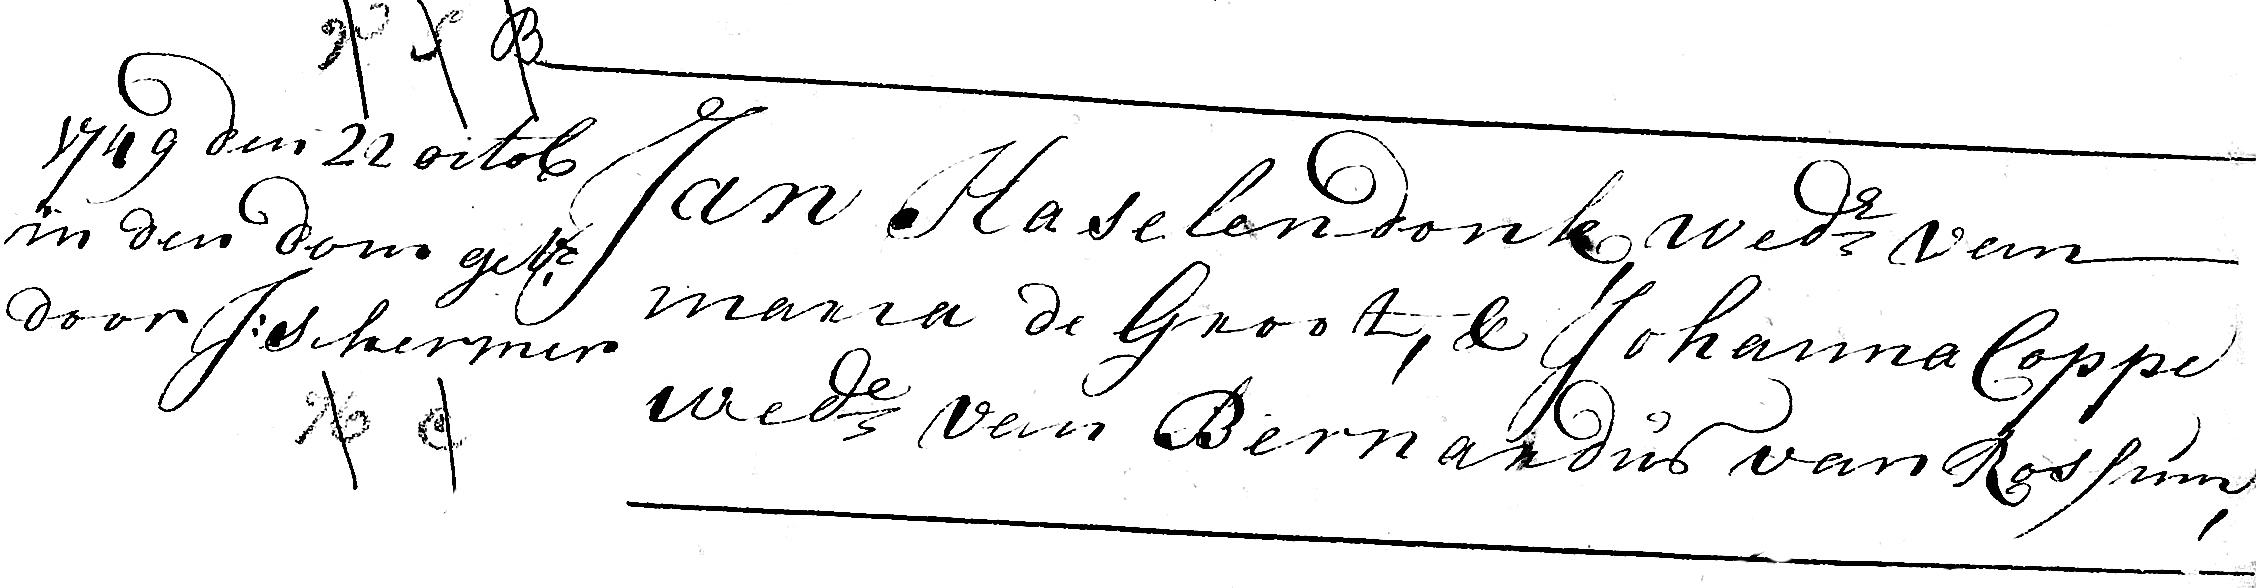 1749 den 22 octob
in den dom get.
door J: schermer
Jan Haselendonk wedr van
maria de Groot, & Johanna Coppe
wede van Bernardus van Rossum,